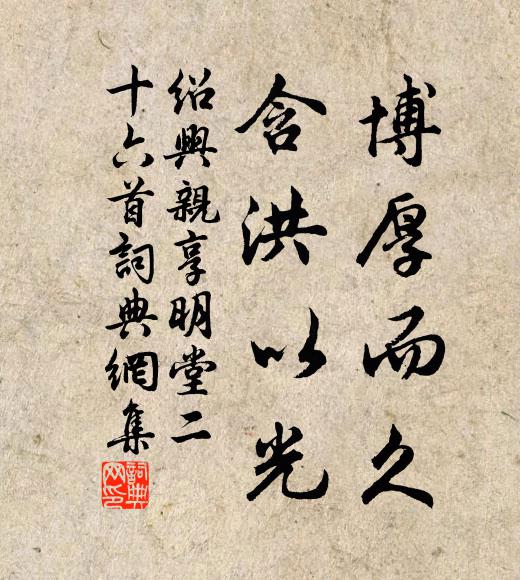 博厚而久
含洪以光
紹興親享明堂二
十六首詞典網集
詞典
网印